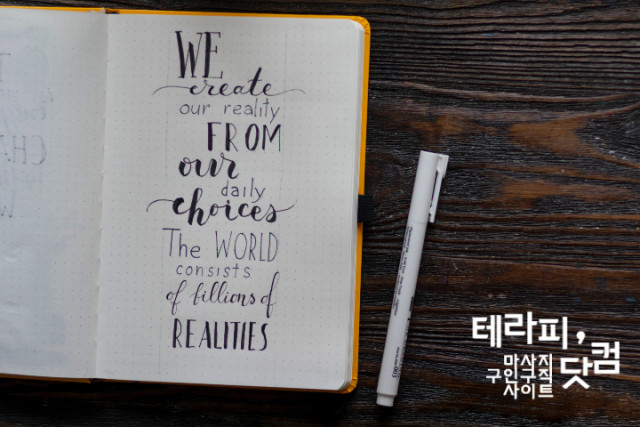 WE
create
our reality
FROM
our
daily
choices
The WORLD
consists
of billions of
REALITIES
테라피,
마사지
구인구직
사이트
닷컴